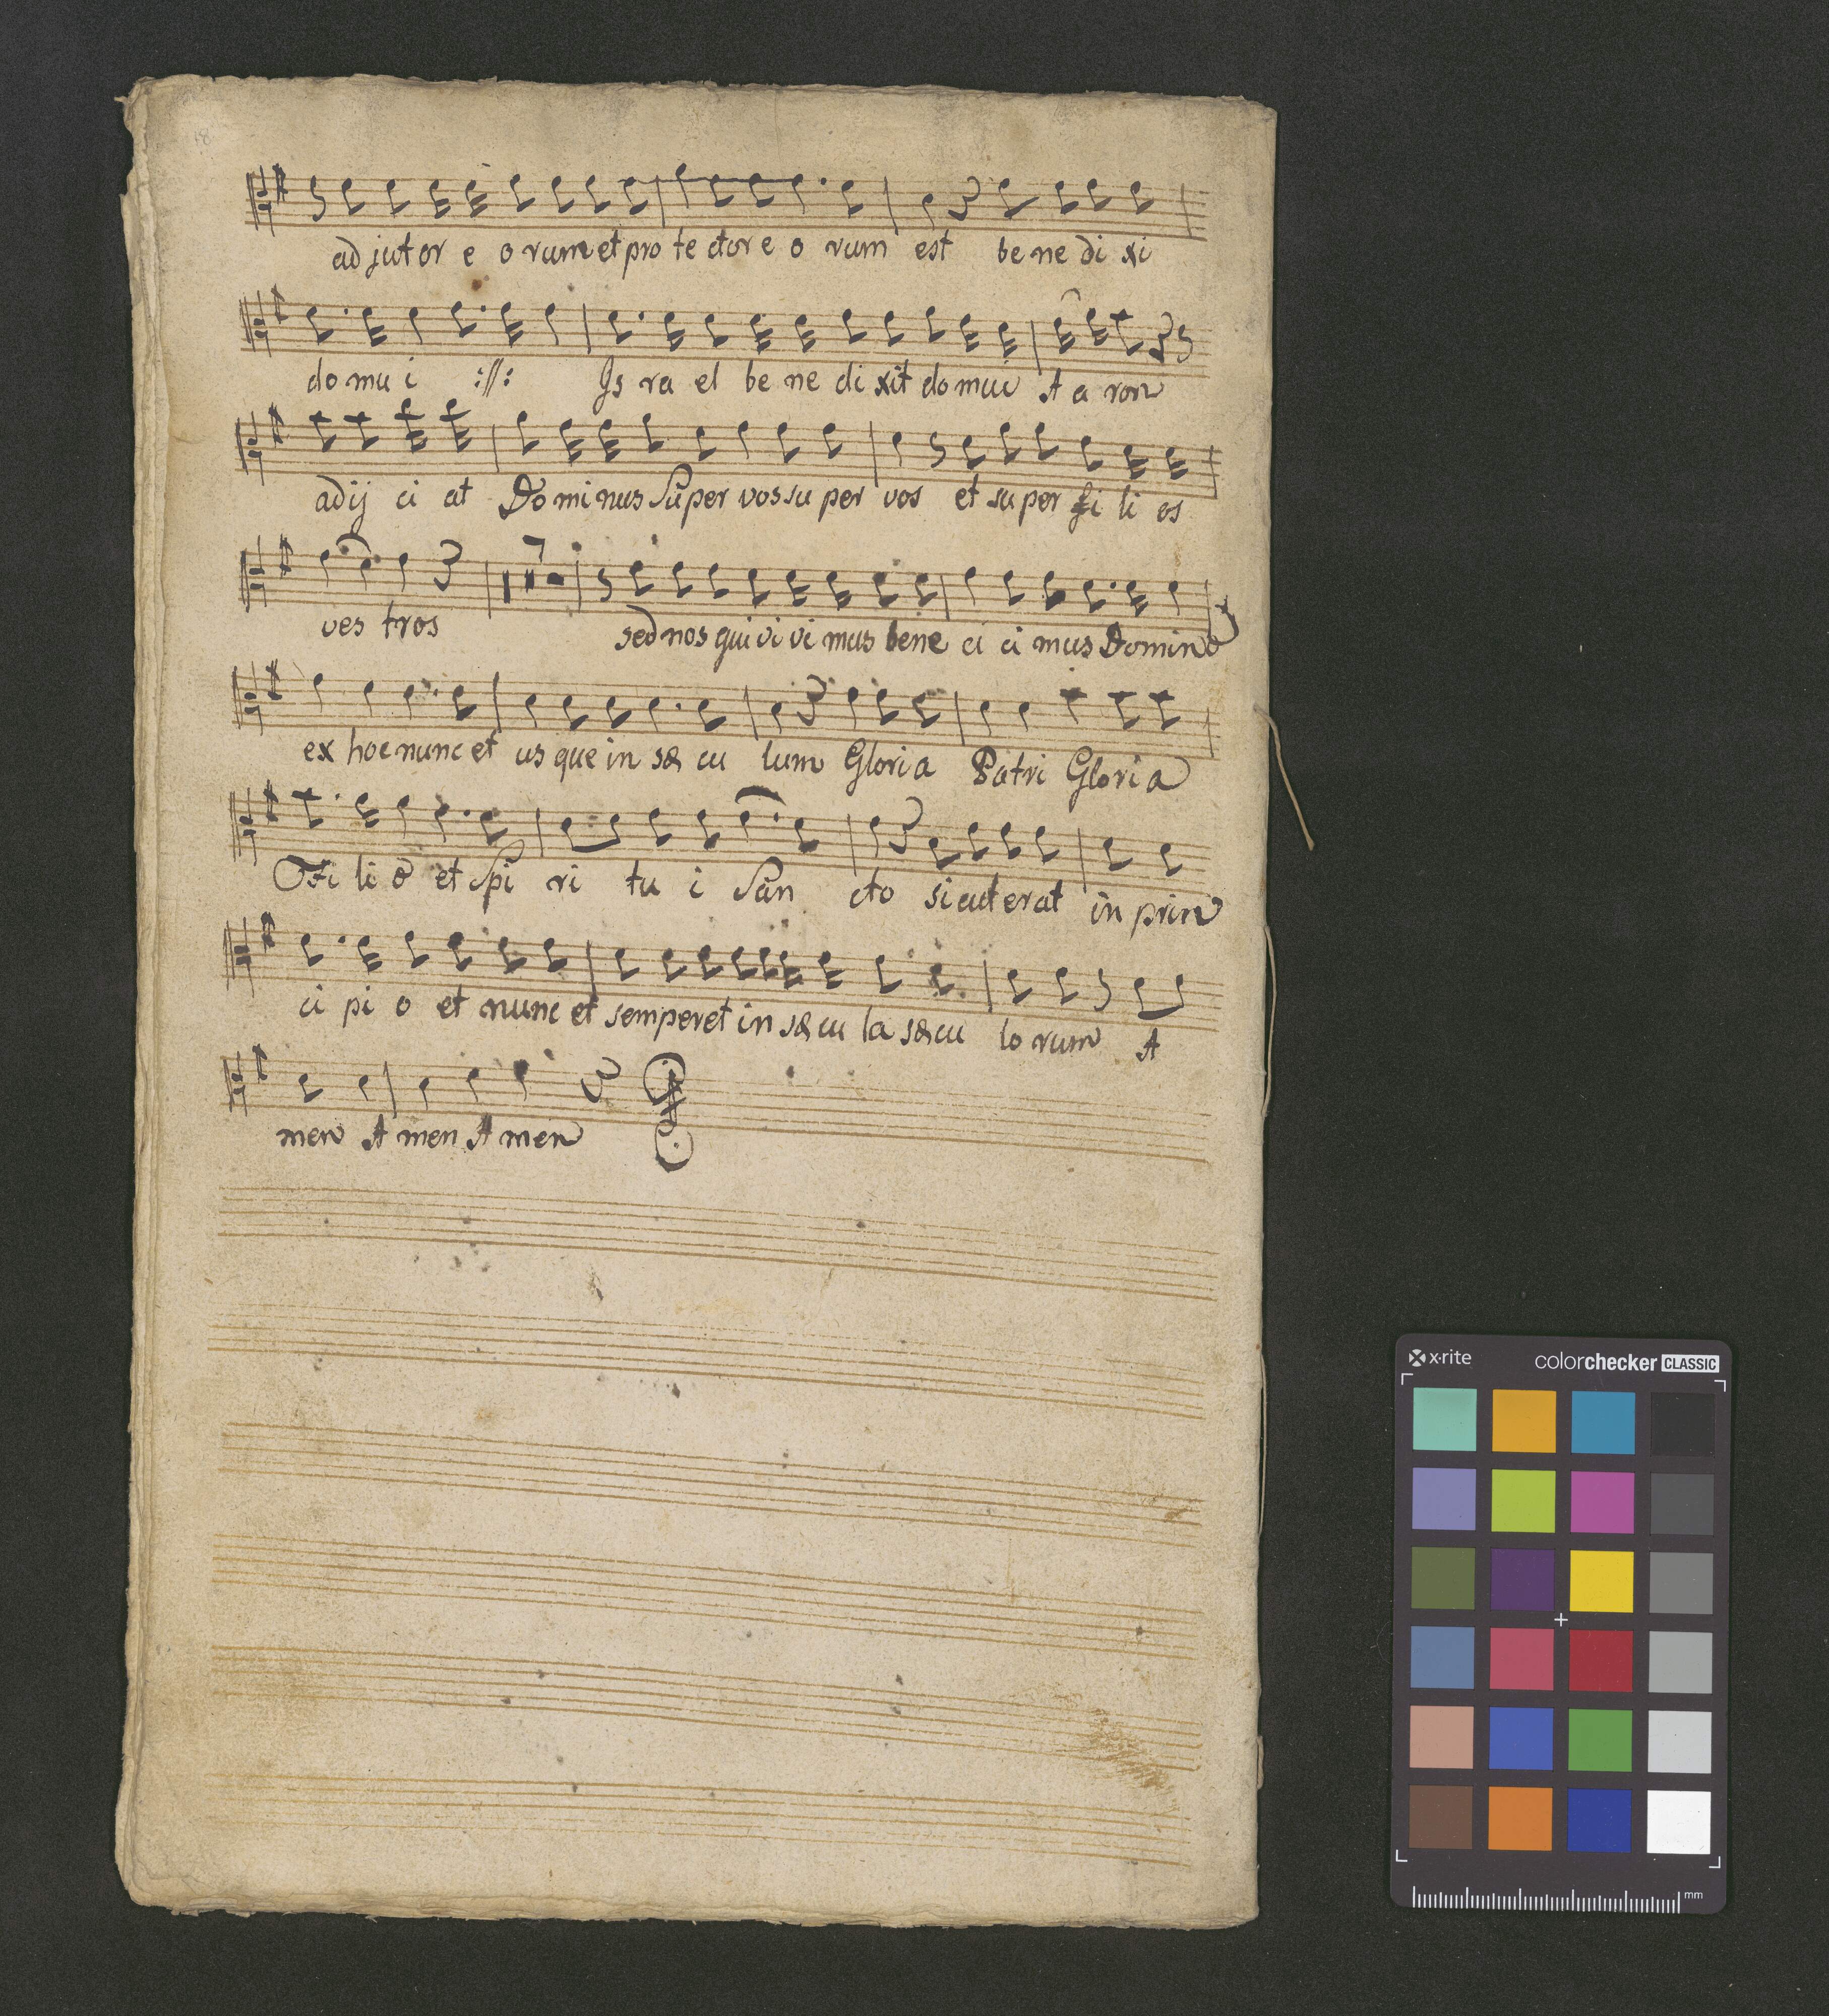 18
ad jut or e o rum et pro te ctor e o rum est be ne di xi
do mu i :||: Js ra el be ne di xit do mui A a ron
adij ci at Do mi nus Super vos su per vos et su per fi li os
ves tros sed nos qui vi vi mus bene ci ci mus Domino
ex hoc nunc et us que in sæ cu lum Gloria Patri Gloria
Fi li o et Spi ri tu i San cto si cut erat in prin
ci pi o et nunc et semper et in sæ cu la sæ cu lo rum A
men A men A men
x·rite colorchecker CLASSIC
mm